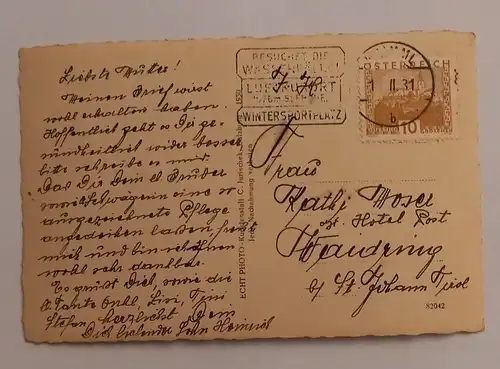 Liebste Mutter!
Meinen Brief wirst
wohl erhalten haben.
Hoffentlich geht es Dir ge-
sundheitlich wieder besser
bitte schreibe es mir.
Das Du dem l. Bruder
eine so
ausgezeichnete Pflege
angedeihen lassen,
mich und bin
wohl sehr dankbar.
Es grüst Dich, sowie die
l. Tante Onkl. Lisi, Tini
Stefan herzlichst Dein
Dich liebender Sohn Heinrich
ECHT PHOTO - C. Jurischek
BESUCHET DIE
LUFTKURORT
WINTERSPORTPLATZ
ÖSTERREICH
1. II. 31
b
10
Frau
Kathi Moser
Hotel Post
Waidring
b/ St. Johann Tirol
82042